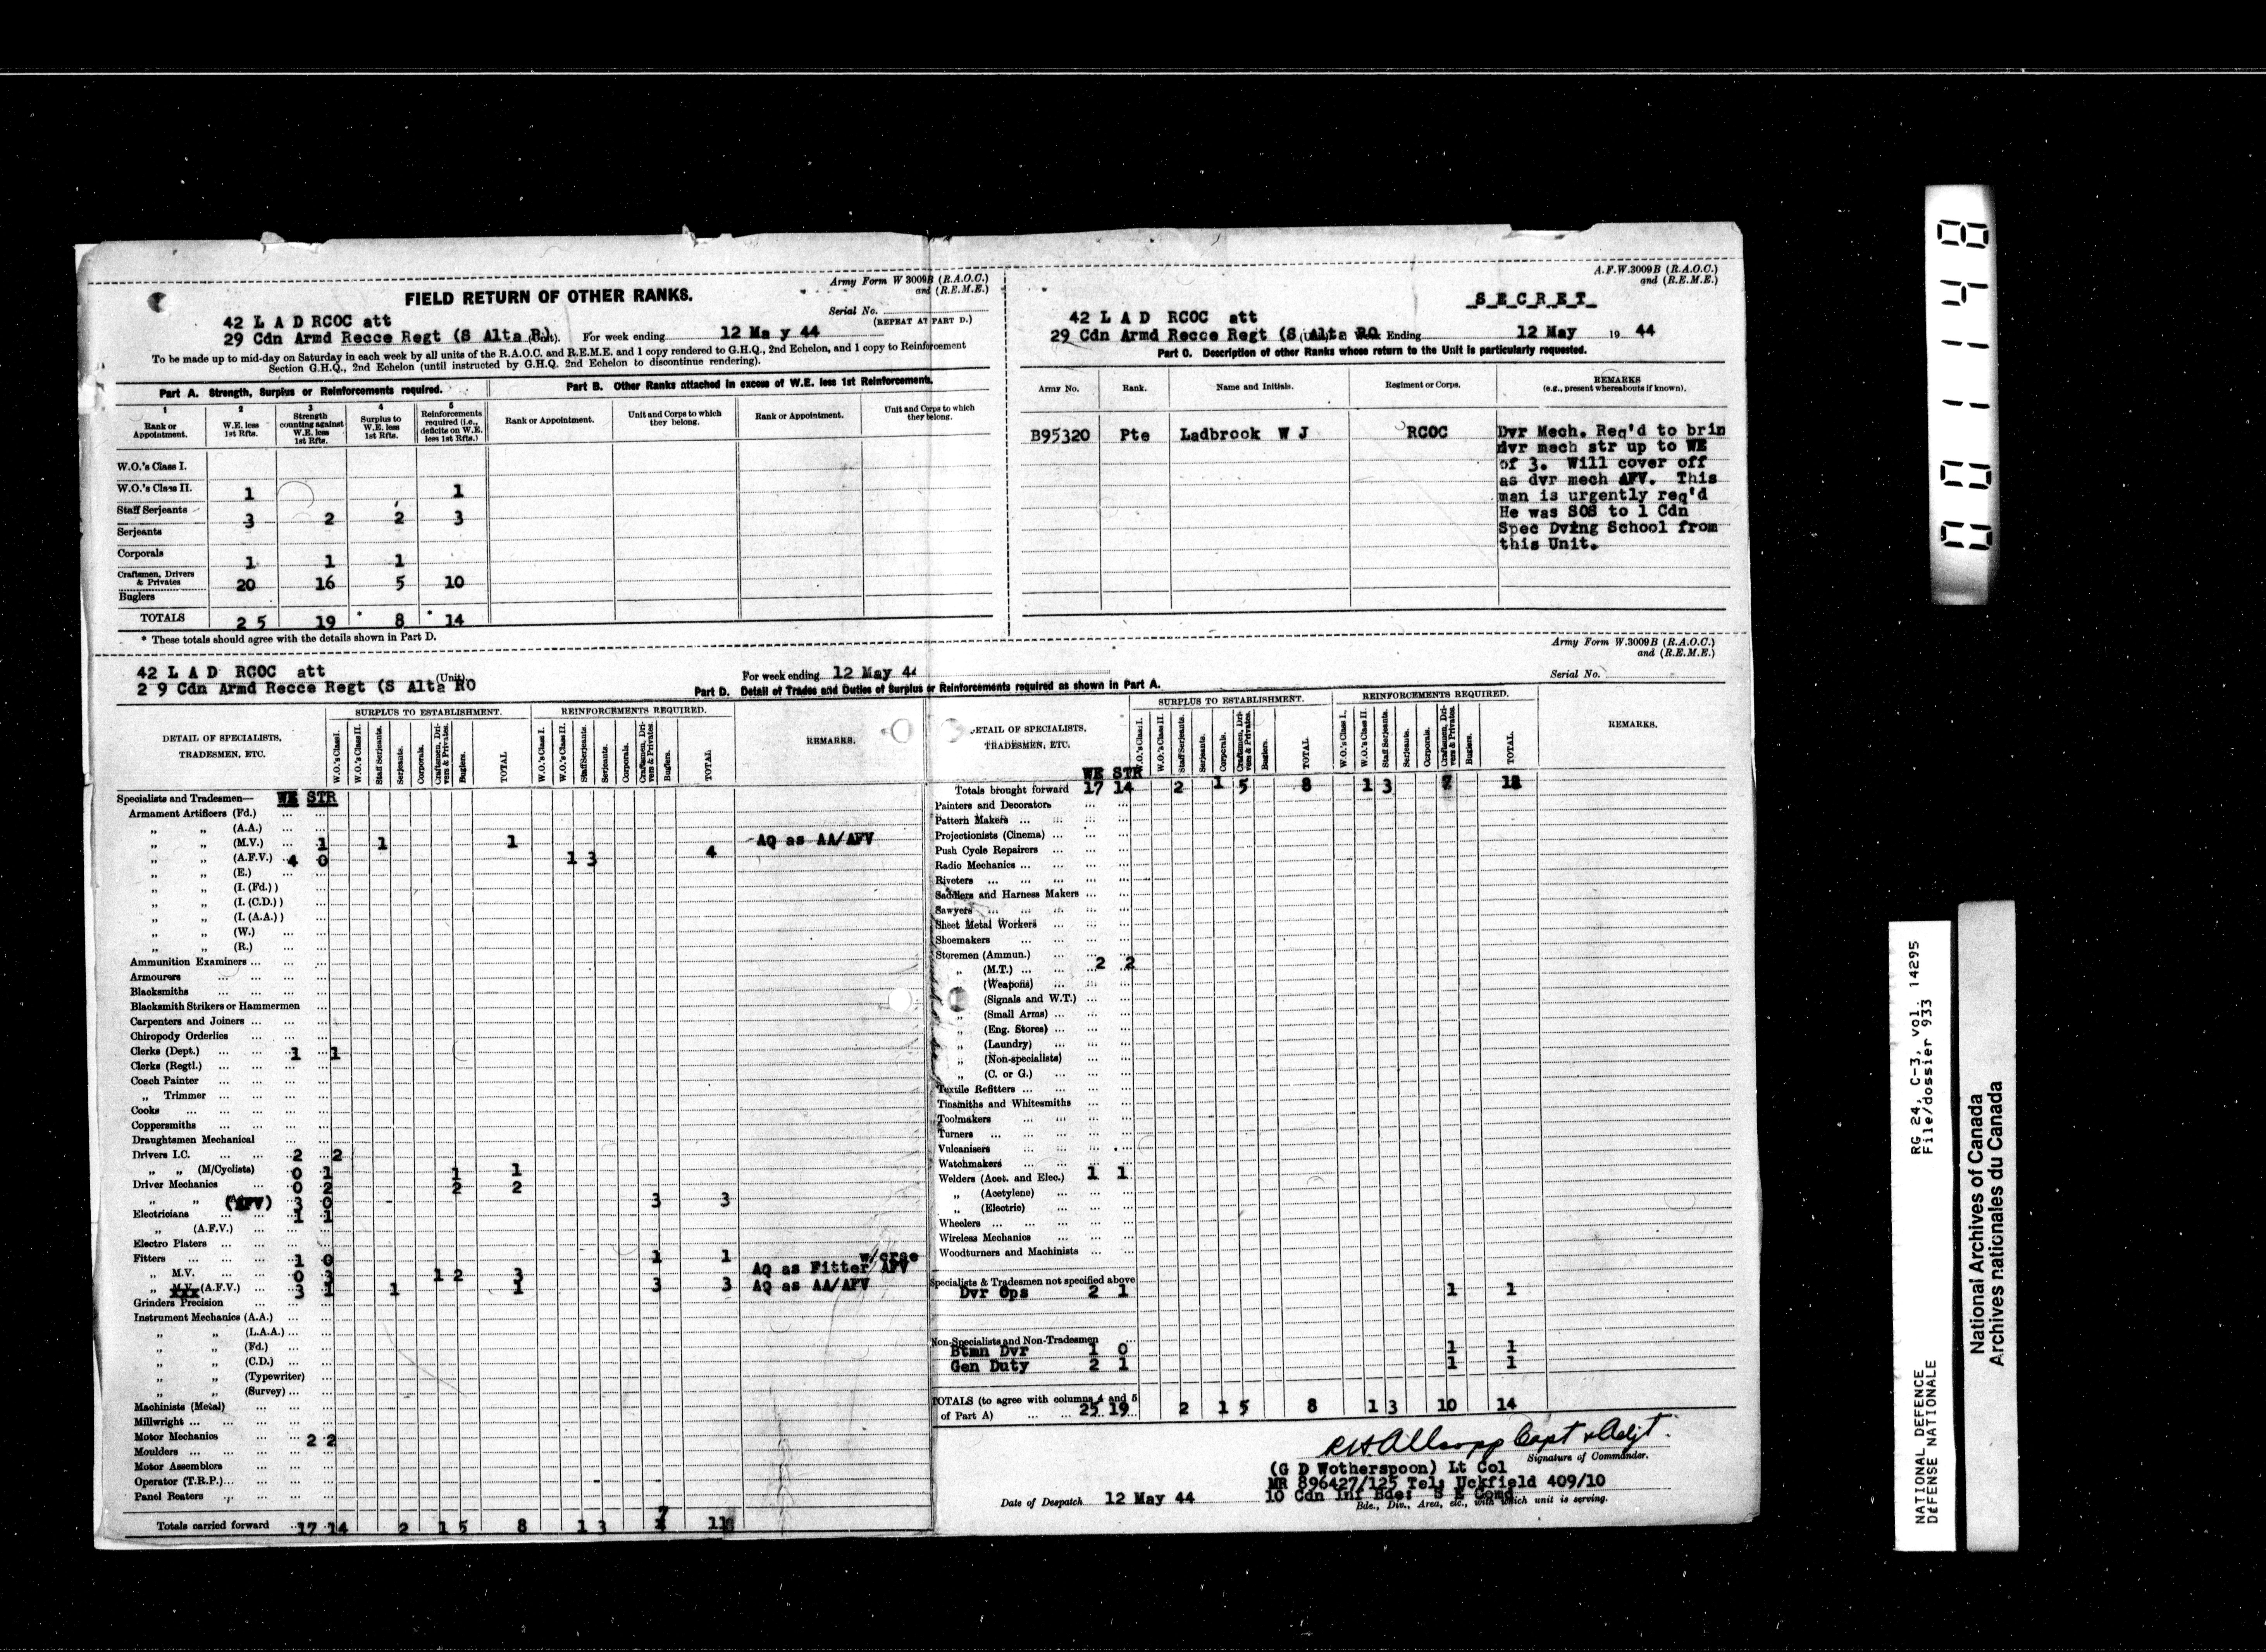 Army Form W 3009B (R.A.O.C.)
and (R.E.M.E.)
FIELD RETURN OF OTHER RANKS.
Serial No.
(REPEAT AT PART D.)
42 L A D RCOC att
29 Cdn Armd Recce Regt (S Alta R) (Unit). For week ending 12 Ma y 44
To be made up to mid-day on Saturday in each week by all units of the R.A.O.C. and R.E.M.E. and 1 copy rendered to G.H.Q., 2nd Echelon, and 1 copy to Reinforcement
Section G.H.Q., 2nd Echelon (until instructed by G.H.Q. 2nd Echelon to discontinue rendering).
Part A. Strength, Surplus or Reinforcements required.
Part B. Other Ranks attached in excess of W.E. less 1st Reinforcements.
1 2 3 4 5
Rank or Appointment. W.E. less 1st Rfts. Strength counting against W.E. less 1st Rfts. Surplus to W.E. less 1st Rfts. Reinforcements required (i.e., deficits on W.E. less 1st Rfts.)
Rank or Appointment. Unit and Corps to which they belong. Rank or Appointment. Unit and Corps to which they belong.
W.O.'s Class I.
W.O.'s Class II. 1 1
Staff Serjeants 3 2 2 3
Serjeants
Corporals 1 1 1
Craftsmen, Drivers & Privates 20 16 5 10
Buglers
TOTALS 2 5 19 * 8 * 14
* These totals should agree with the details shown in Part D.
A.F.W.3009B (R.A.O.C.)
and (R.E.M.E.)
S E C R E T
42 L A D RCOC att
29 Cdn Armd Recce Regt (S Alta RO (Unit) Week Ending 12 May 19 44
Part C. Description of other Ranks whose return to the Unit is particularly requested.
Army No. Rank. Name and Initials. Regiment or Corps. REMARKS
(e.g., present whereabouts if known).
B95320 Pte Ladbrook W J RCOC Dvr Mech. Req'd to brin
dvr mech str up to WE
of 3. Will cover off
as dvr mech AFV. This
man is urgently req'd
He was SOS to 1 Cdn
Spec Dving School from
this Unit.
Army Form W.3009B (R.A.O.C.)
and (R.E.M.E.)
42 L A D RCOC att
2 9 Cdn Armd Recce Regt (S Alta RO (Unit). For week ending 12 May 44 Serial No.
Part D. Detail of Trades and Duties of Surplus or Reinforcements required as shown in Part A.
DETAIL OF SPECIALISTS, TRADESMEN, ETC. SURPLUS TO ESTABLISHMENT. REINFORCEMENTS REQUIRED. REMARKS.
W.O.'s Class I. W.O.'s Class II. Staff Serjeants. Serjeants. Corporals. Craftsmen, Drivers & Privates. Buglers. TOTAL
W.O.'s Class I. W.O.'s Class II. Staff Serjeants. Serjeants. Corporals. Craftsmen, Drivers & Privates. Buglers. TOTAL.
Specialists and Tradesmen— WE STR
Armament Artificers (Fd.)
„ „ (A.A.)
„ „ (M.V.) 1 1 1 AQ as AA/AFV
„ „ (A.F.V.) 4 0 1 3 4
„ „ (E.)
„ „ (I. (Fd.) )
„ „ (I. (C.D.) )
„ „ (I. (A.A.) )
„ „ (W.)
„ „ (R.)
Ammunition Examiners
Armourers
Blacksmiths
Blacksmith Strikers or Hammermen
Carpenters and Joiners
Chiropody Orderlies
Clerks (Dept.) 1 1
Clerks (Regtl.)
Coach Painter
„ Trimmer
Cooks
Coppersmiths
Draughtsmen Mechanical
Drivers I.C. 2 2
„ „ (M/Cyclists) 0 1 1 1
Driver Mechanics 0 2 2 2
„ „ (AFV) 3 0 3 3
Electricians 1 1
„ (A.F.V.)
Electro Platers
Fitters 1 0 1 1 w/crse
„ M.V. 0 3 1 2 3 AQ as Fitter AFV
„ M.V. (A.F.V.) 3 1 1 1 3 3 AQ as AA/AFV
Grinders Precision
Instrument Mechanics (A.A.)
„ „ (L.A.A.)
„ „ (Fd.)
„ „ (C.D.)
„ „ (Typewriter)
„ „ (Survey)
Machinists (Metal)
Millwright
Motor Mechanics 2 2
Moulders
Motor Assemblers
Operator (T.R.P.)
Panel Beaters
Totals carried forward 17 14 2 1 5 8 1 3 7 11
DETAIL OF SPECIALISTS, TRADESMEN, ETC. SURPLUS TO ESTABLISHMENT. REINFORCEMENTS REQUIRED. REMARKS.
W.O.'s Class I. W.O.'s Class II. Staff Serjeants. Serjeants. Corporals. Craftsmen, Drivers & Privates. Buglers. TOTAL
W.O.'s Class I. W.O.'s Class II. Staff Serjeants. Serjeants. Corporals. Craftsmen, Drivers & Privates. Buglers. TOTAL
WE STR
Totals brought forward 17 14 2 1 5 8 1 3 7
Painters and Decorators
Pattern Makers
Projectionists (Cinema)
Push Cycle Repairers
Radio Mechanics
Riveters
Saddlers and Harness Makers
Sawyers
Sheet Metal Workers
Shoemakers
Storemen (Ammun.)
„ (M.T.) 2 2
(Weapons)
„ (Signals and W.T.)
„ (Small Arms)
„ (Eng. Stores)
„ (Laundry)
„ (Non-specialists)
„ (C. or G.)
Textile Refitters
Tinsmiths and Whitesmiths
Toolmakers
Turners
Vulcanisers
Watchmakers
Welders (Acet. and Elec.) 1 1
„ (Acetylene)
„ (Electric)
Wheelers
Wireless Mechanics
Woodturners and Machinists
Specialists & Tradesmen not specified above
Dvr Ops 2 1 1 1
Non-Specialists and Non-Tradesmen
Btmn Dvr 1 0 1 1
Gen Duty 2 1 1 1
TOTALS (to agree with columns 4 and 5
of Part A) 25 19 2 1 5 8 1 3 10 14
RHAllsopp Capt & Adjt.
Signature of Commander.
(G D Wotherspoon) Lt Col
MR 896427/125 Tel: Uckfield 409/10
10 Cdn Inf Bde: S E Comd
Bde., Div., Area, etc., with which unit is serving.
Date of Despatch 12 May 44
00001148
RG 24, C-3, vol. 14295
File/dossier 933
NATIONAL DEFENCE
DÉFENSE NATIONALE
National Archives of Canada
Archives nationales du Canada